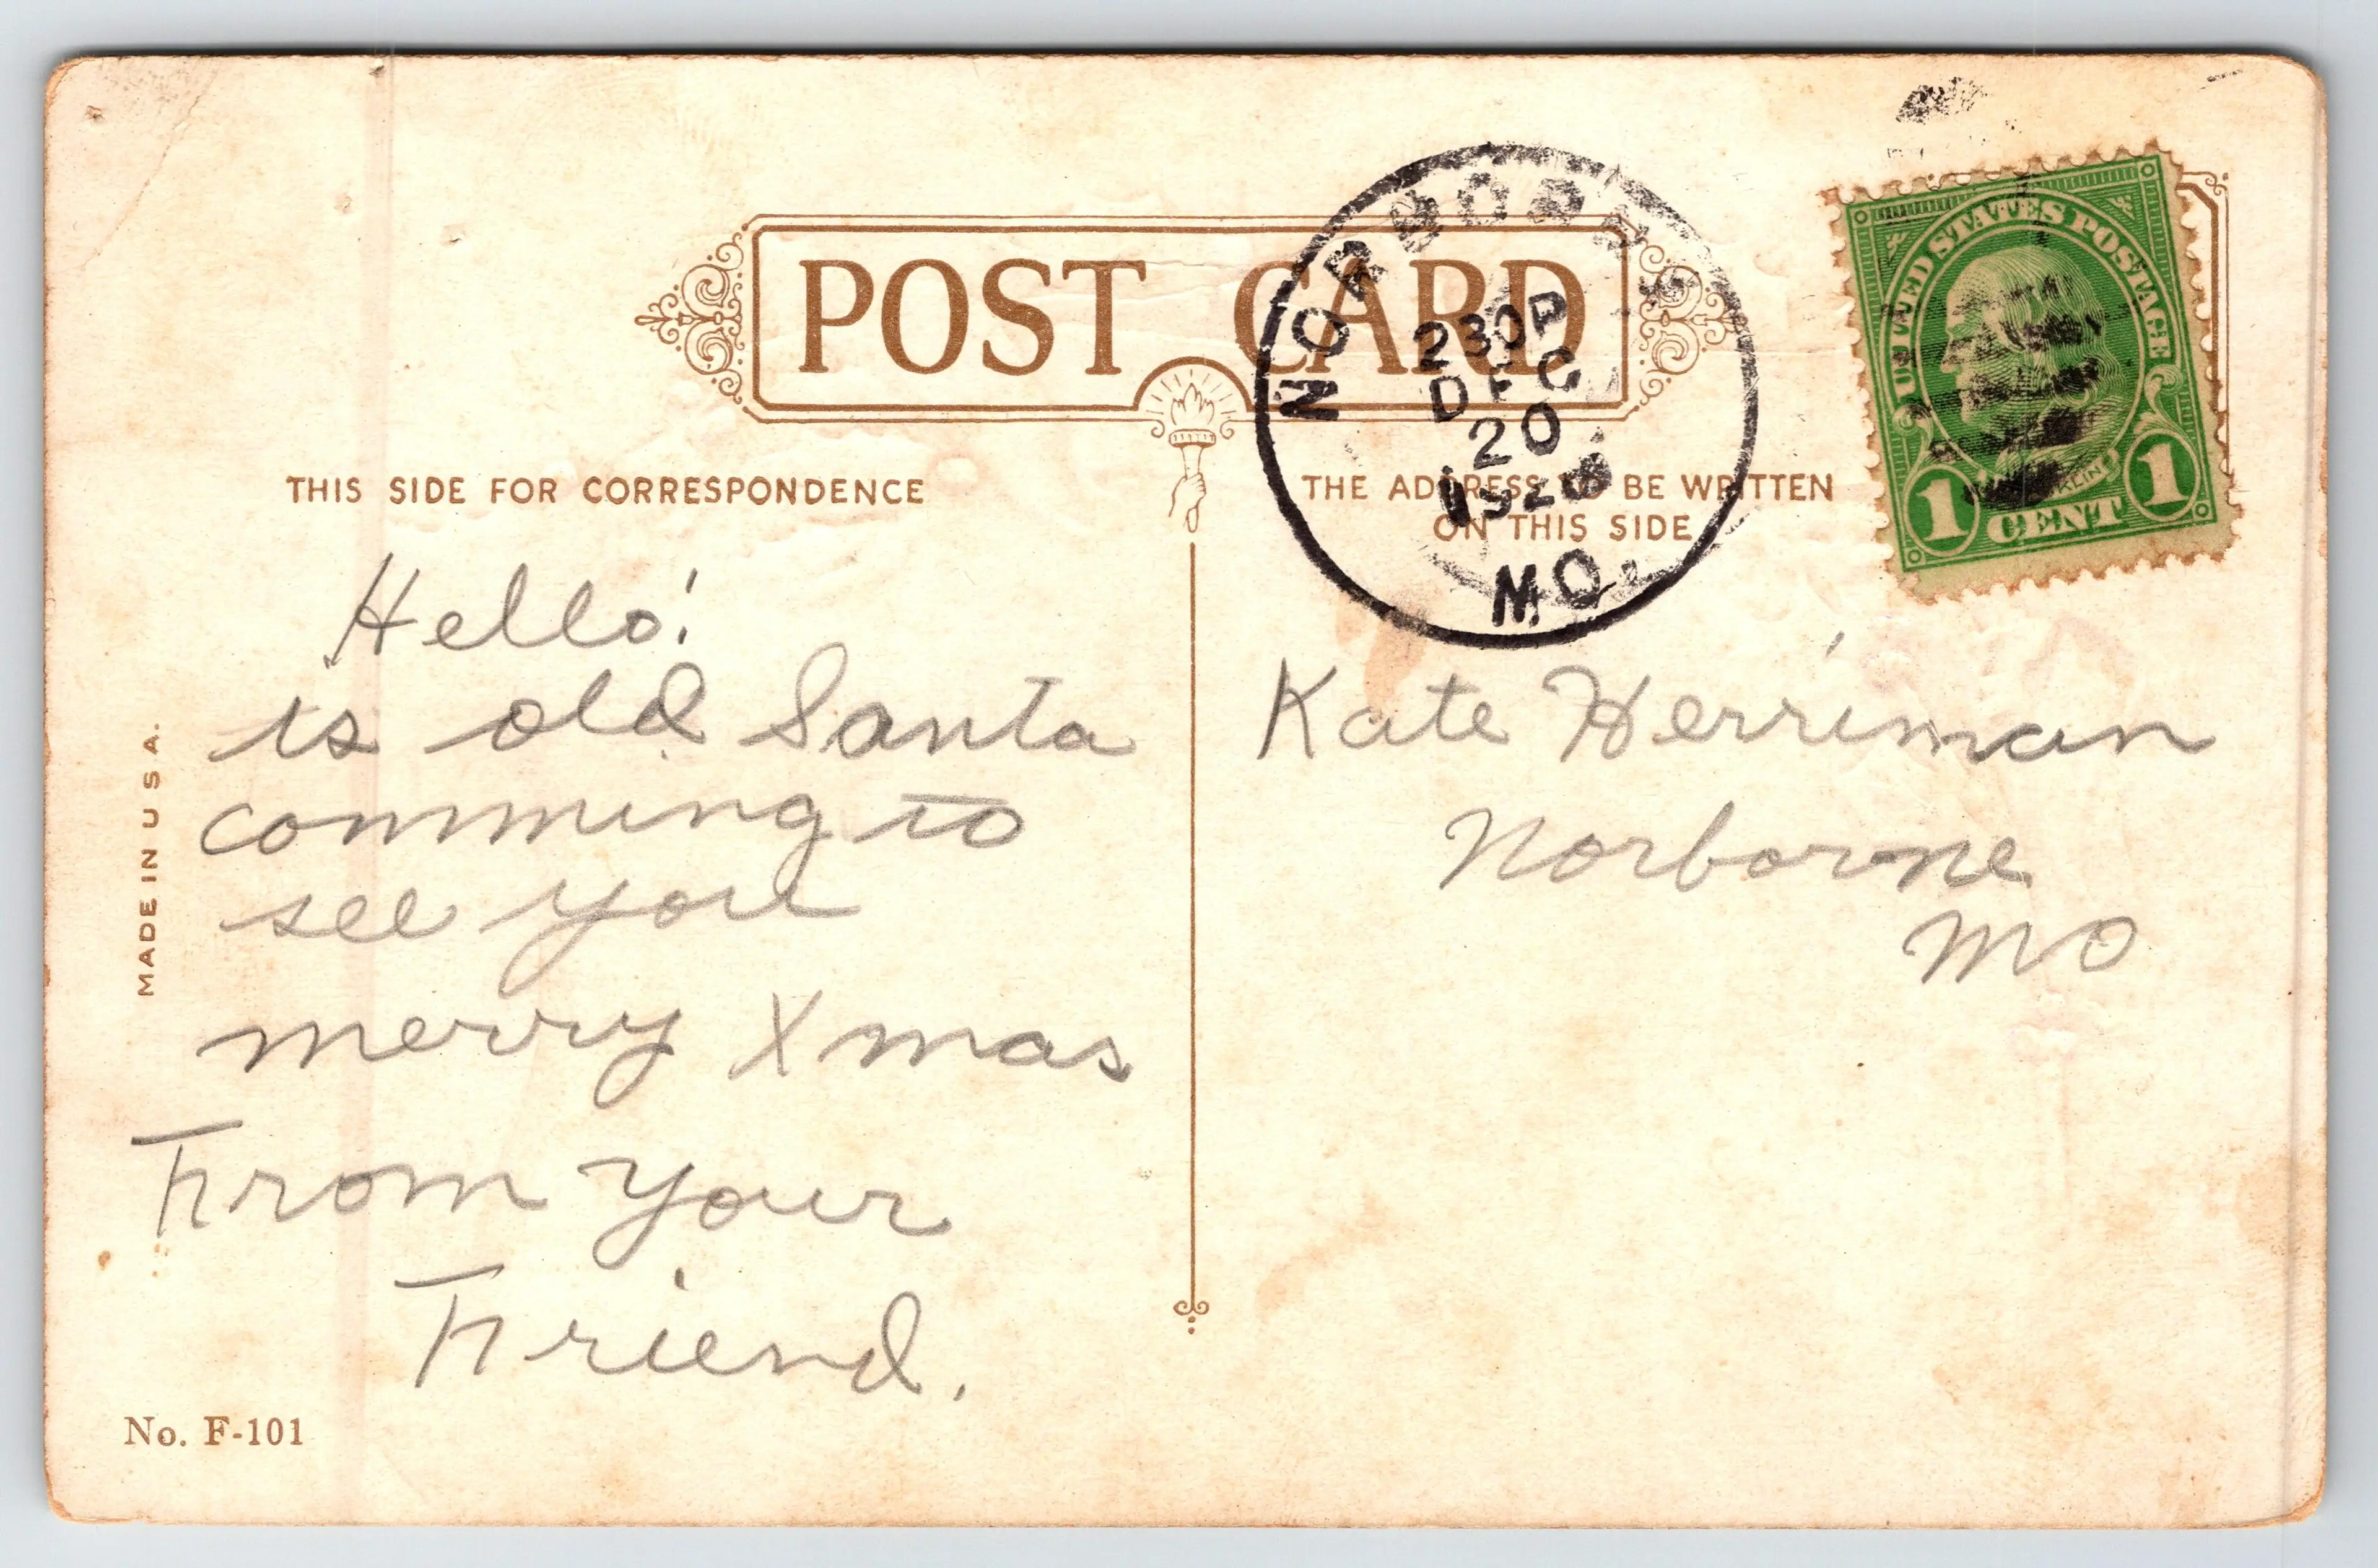 POST CARD
NORBORNE
230P
DEC
20
MO.
UNITED STATES POSTAGE
1 CENT 1
THIS SIDE FOR CORRESPONDENCE
THE ADDRESS TO BE WRITTEN
ON THIS SIDE
Hello!
is old Santa
comming to
see you
merry Xmas
From your
Friend.
Kate Herriman
Norborne
Mo
MADE IN U S A.
No. F-101